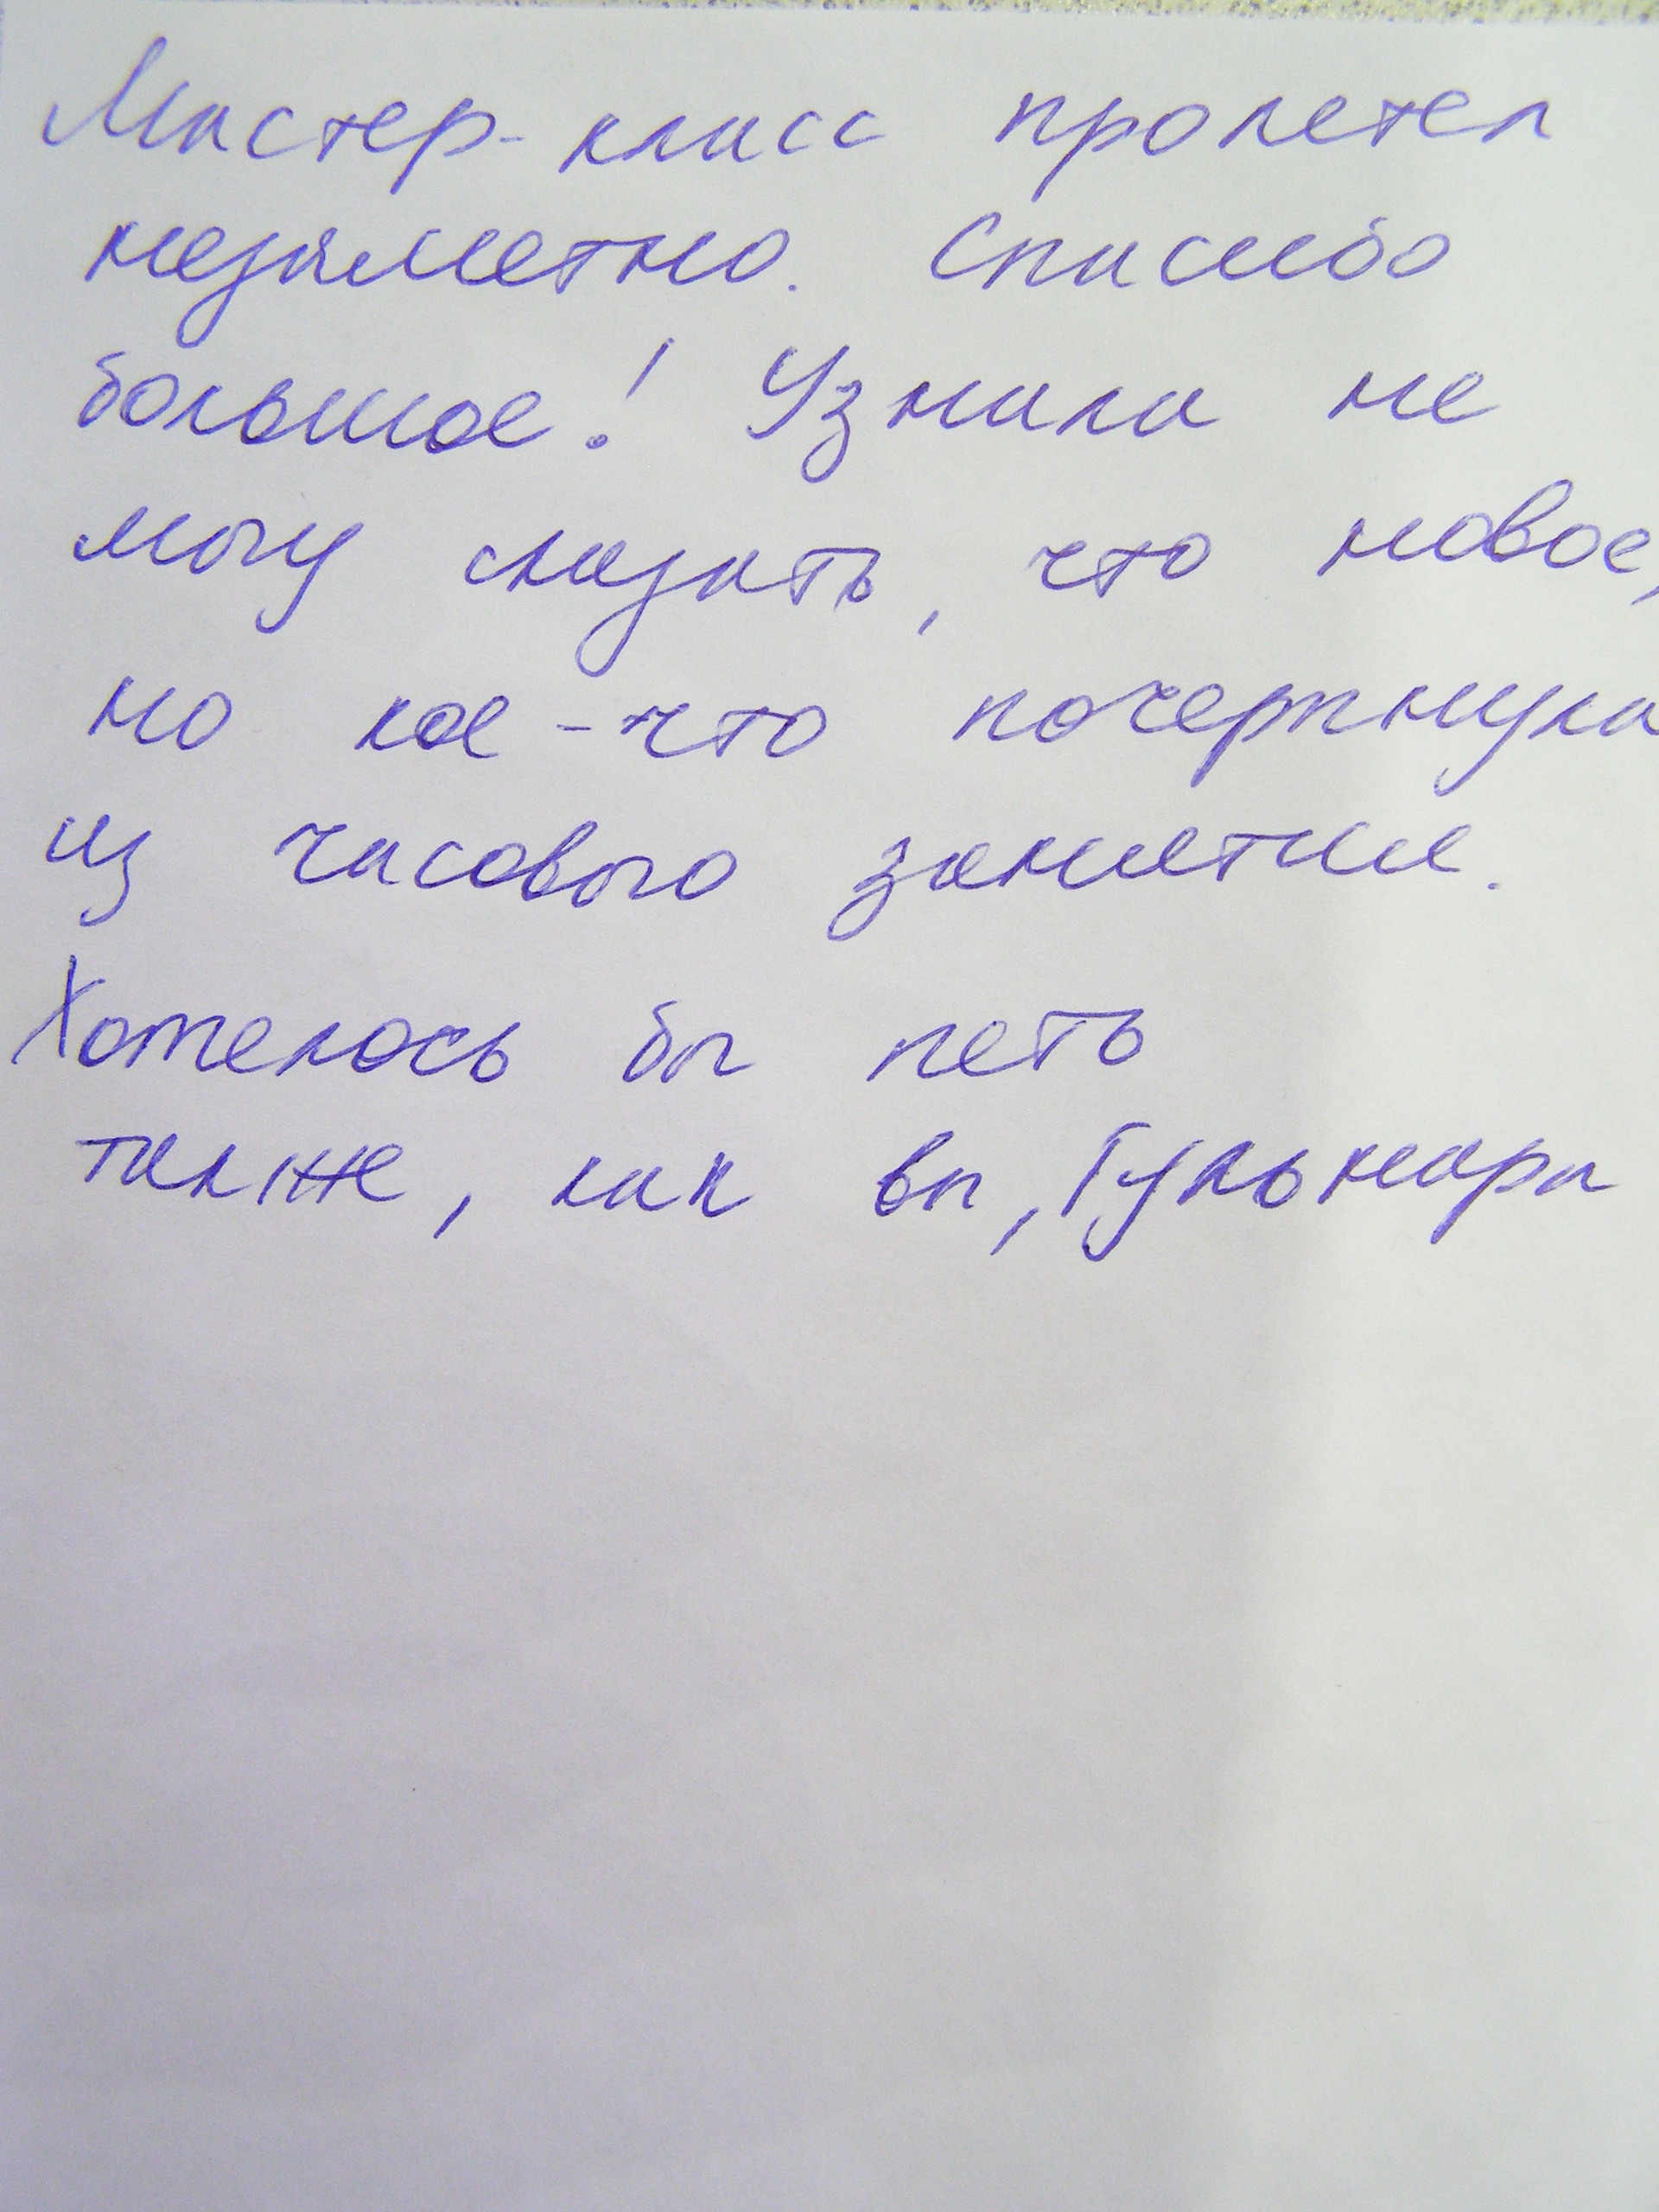 Мастер-класс пролетел
незаметно. Спасибо
большое! Узнала не
могу сказать, что новое,
но кое-что почерпнула
из часового занятия.
Хотелось бы петь
также, как вы, Гульнара